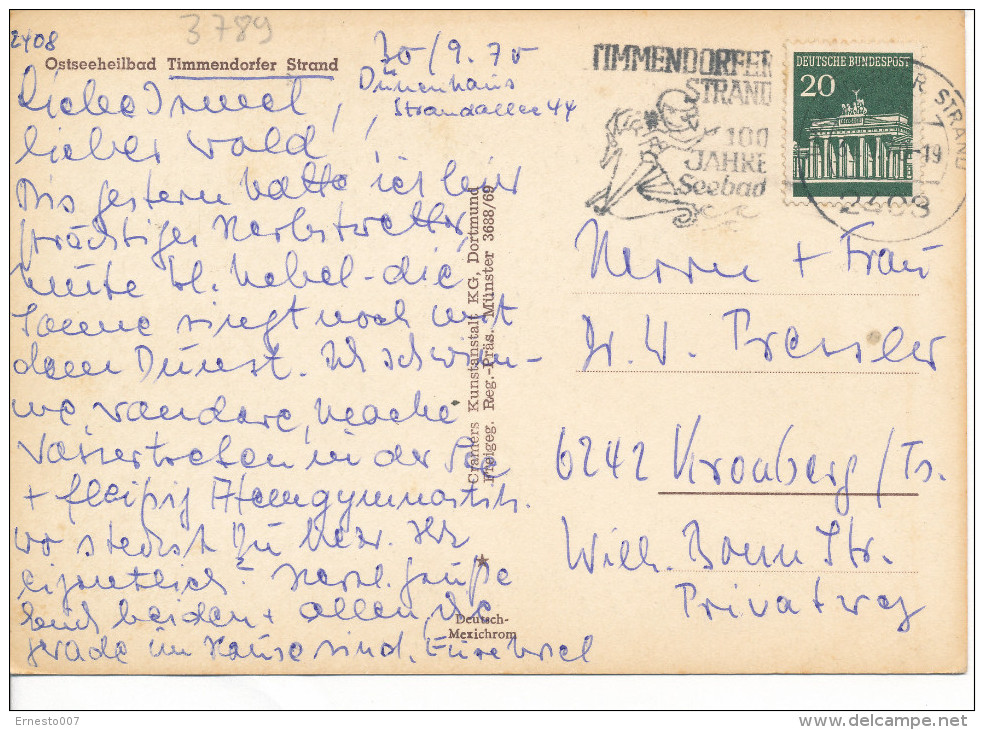 3789
2408
Ostseeheilbad Timmendorfer Strand
30/9.70
Dünenhaus
Strandallee 44
Liebe Irmel,
lieber Wold,
Bis gestern hatte ich hier
prächtiges Herbstwetter,
heute bl. Nebel - die
Sonne ringt noch mit
dem Dunst. Ich schwim-
me, wandere, mache
Wassertreten in der See
+ fleißig Atemgymnastik.
Wo steckst Du bezw. Ihr
eigentlich? Herzl. Grüße
Euch beiden + allen, die
gerade im Hause sind. Eure
Cramers Kunstanstalt KG, Dortmund
Freigeg. Reg.-Präs. Münster 3688/69
Deutsch-
Mexichrom
TIMMENDORFER
STRAND
100
JAHRE
Seebad
DEUTSCHE BUNDESPOST
20
R. STRAND
-19
2408
Herrn + Frau
Dr. W. Pressler
6242 Kronberg/Ts.
Wilh. Bonn Str.
Privatweg
Ernesto007
delcampe.net